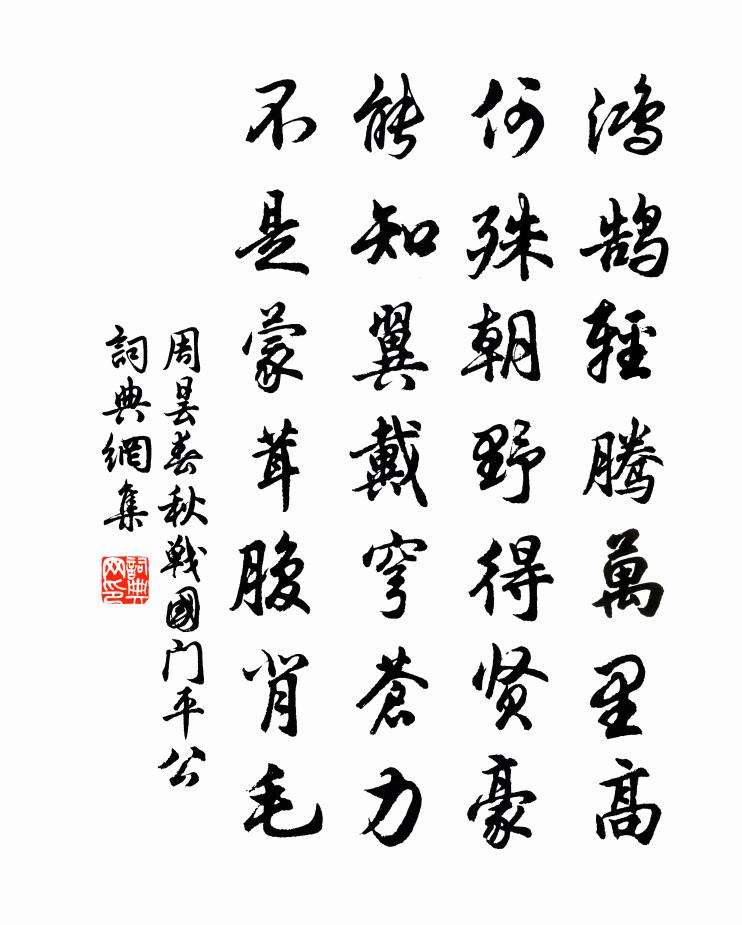 鴻鹄輕騰萬里高
何殊朝野得贤豪
能知翼戴穹蒼力
不是蒙茸腹背毛
周昙春秋戰國门平公
詞典網集
詞典
网印